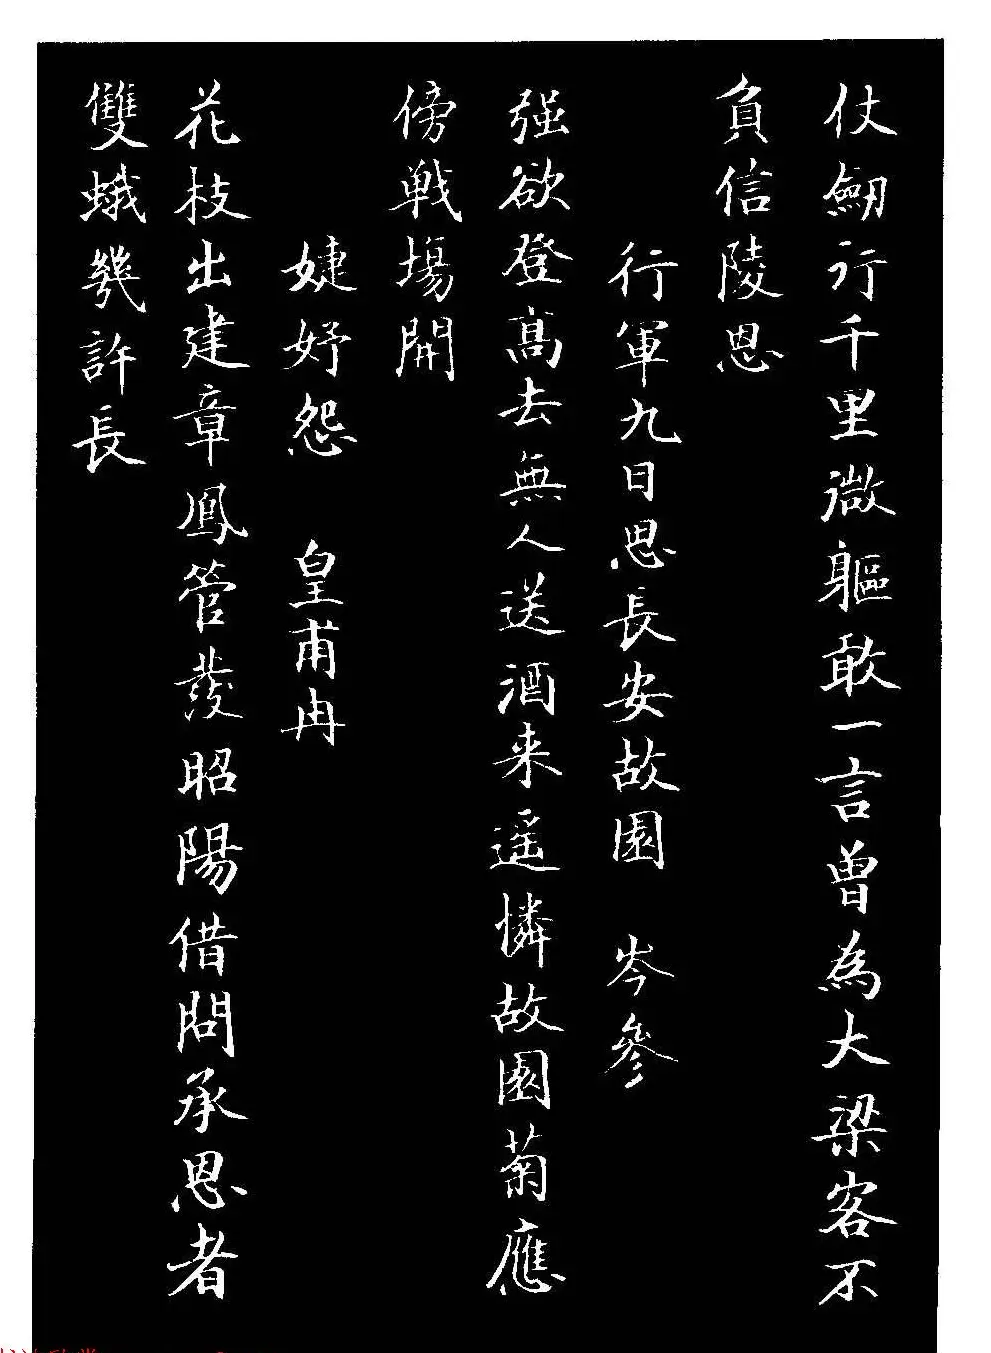 仗劒行千里微軀敢一言曽為大梁客不
負信陵恩
行軍九日思長安故園 岑參
强欲登髙去無人送酒来遥憐故園菊應
傍戰場開
婕妤怨 皇甫冉
花枝出建章鳳管發昭陽借問承恩者
雙蛾幾許長